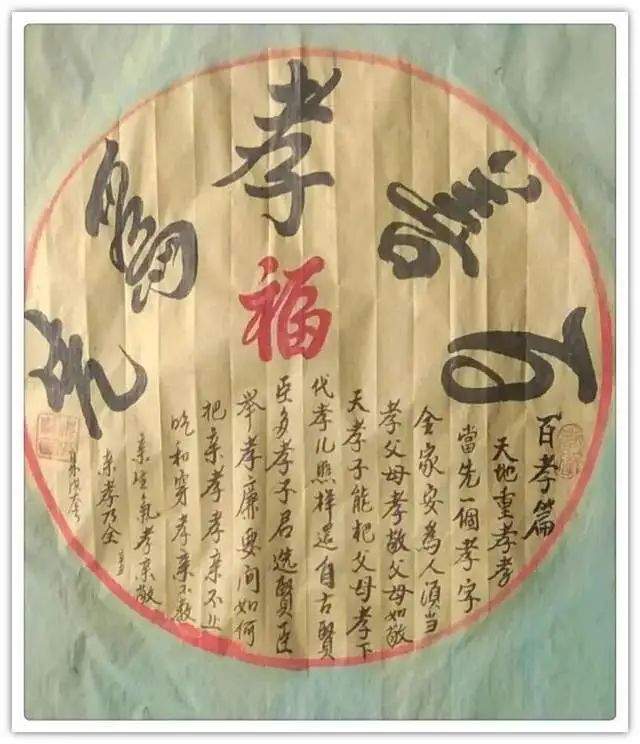 百善孝為先
福
百孝篇
天地重孝孝
當先一個孝字
全家安為人須當
孝父母孝敬父母如敬
天孝子能把父母孝下
代孝儿照样還自古賢
臣多孝子君选賢臣
舉孝廉要问如何
把亲孝孝亲不止
吃和穿孝亲不教
亲生氣孝亲敬
亲孝乃全